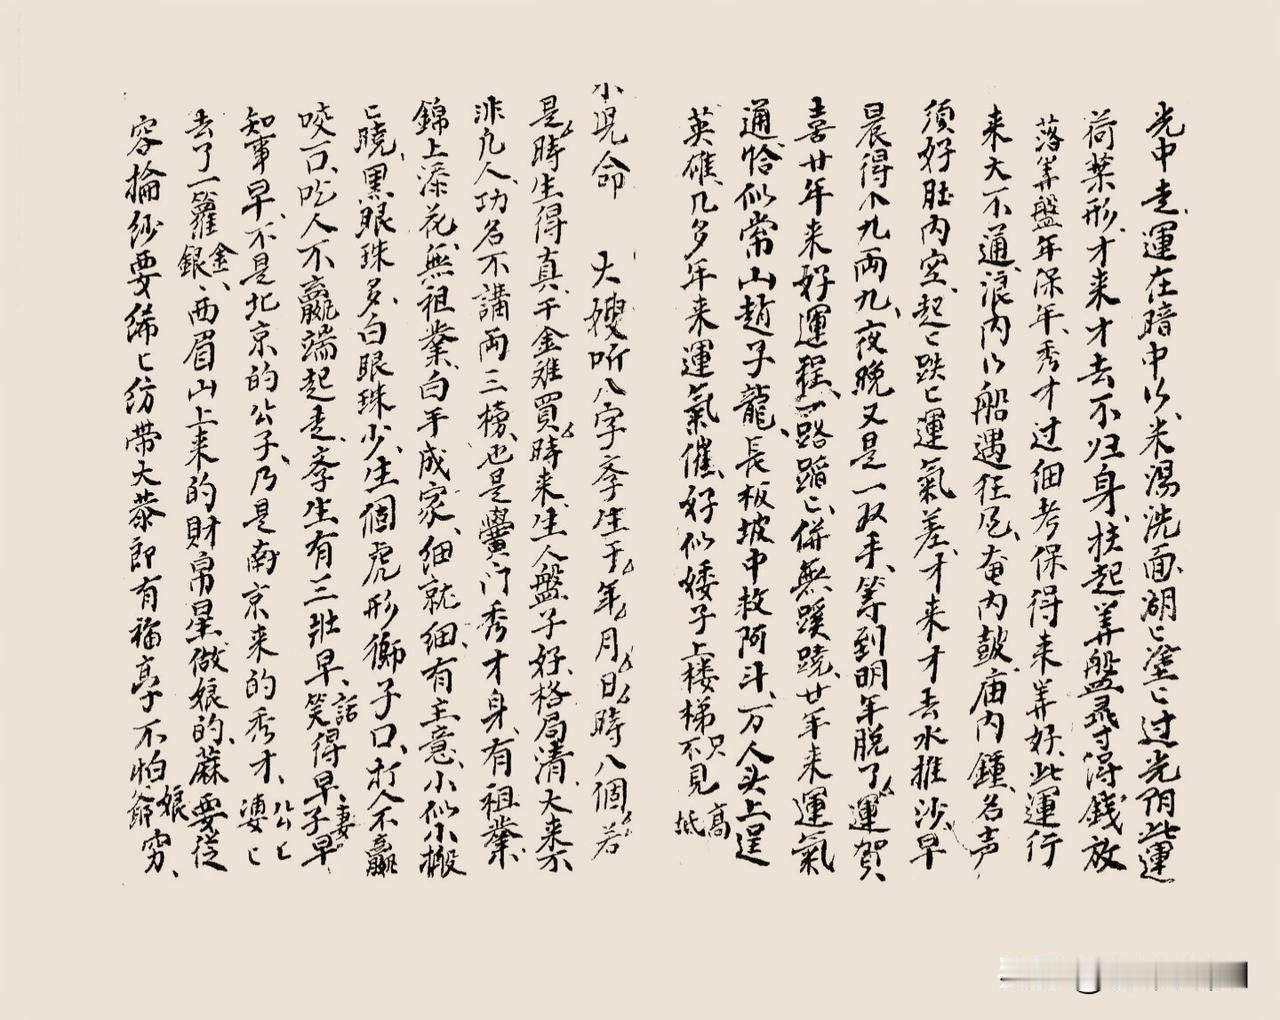 光中走、運在暗中以米湯洗面、湖〻塗〻过光阴、此運
荷葉形、才来才去不归身、扶起筭盤尋得錢放
落筭盤年保年、秀才过细考保得来筭好、此運行
来大不通、浪内以船遇狂风、奄内鼓、庙内鍾、名声
須好肚内空、起〻跌〻運氣差、才来才去水推沙、早
晨得个九両九、夜晚又是一双手、等到明年脱了運、賀
喜廿年来好運程、一路蹈〻併無蹊蹺、廿年来運氣
通、恰似常山趙子龍、長板坡中救阿斗、万人头上逞
英雄、几多年来運氣催、好似矮子上楼梯、只見高不見抵
小児命 大嫂听八字、孝生于年月日時八個若
是時生得真、千金难買時来、生人盤子好、格局清、大来不
非凡人、功名不講両三榜、也是黌门秀才身、有祖業、
錦上添花、無祖業、白手成家、细就细、有主意、小似小搬
〻曉、黑眼珠多、白眼珠少、生個虎形獅子口、打人不贏
咬一口、吃人不贏端起走、孝生有三壯早、笑得早、話早、妻子早
知事早、不是北京的公子、乃是南京来的秀才、公〻婆〻
去了一籮金銀、西眉山上来的財帛星、做娘的、蔴要從
容掄纱要绵〻纺、带大恭郎有福亭、不怕爺娘穷、